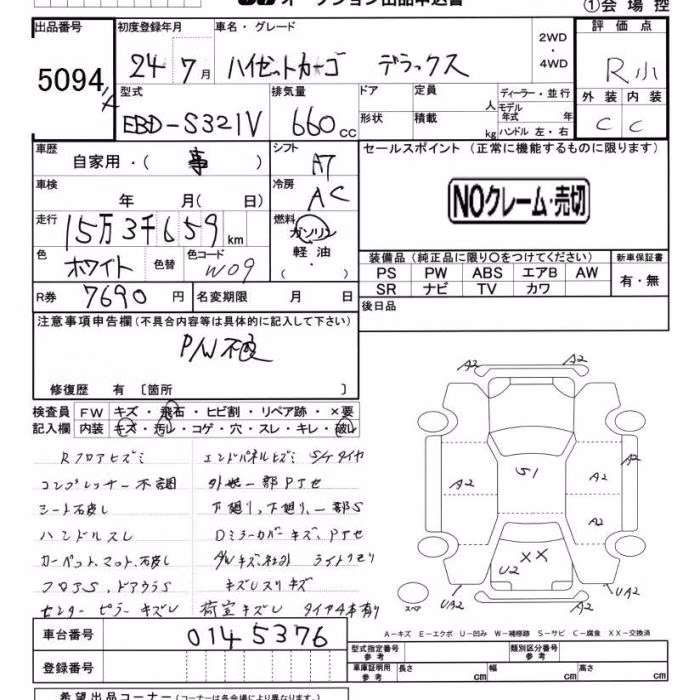 オークション出品申込書
①会場控
出品番号 初度登録年月 車名・グレード 評価点
5094 24年7月 ハイゼットカーゴ デラックス 2WD・4WD R小
型式 排気量 ドア 定員 人 ディーラー・並行 外装 内装
EBD-S321V 660cc 形状 積載 kg モデル年式 年 ハンドル 左・右 C C
車歴 自家用・(事) シフト AT セールスポイント (正常に機能するものに限ります)
車検 年 月(日) 冷房 AC NOクレーム・売切
走行 15万3千659km 燃料 ガソリン・軽油・( )
色 ホワイト 色替 色コード W09 装備品 (純正品に限り○をつけてください) 新車保証書
PS PW ABS エアB AW 有・無
SR ナビ TV カワ
R券 7690円 名変期限 月 日 後日品
注意事項申告欄(不具合内容等は具体的に記入して下さい)
P/W不良
修復歴 有 〔箇所 〕
検査員 FW キズ・飛石・ヒビ割・リペア跡・×要
記入欄 内装 キズ・汚レ・コゲ・穴・スレ・キレ・破レ
A2 A2
A2 S1 A2 A2
A2
U2 XX
UA2 UA2
スペア
Rフロアヒズミ エンドパネルヒズミ S/Tタイヤ
コンプレッサー不調 外装一部PTセ
シート破レ 下廻り、下廻り、一部S
ハンドルスレ DミラーカバーキズPTセ
カーペット、マット、破レ
フロアS、ドアウラS キズレスリキズ
センターピラーキズレ 荷室キズレ タイヤ4本有り
A-キズ E-エクボ U-凹み W-補修跡 S-サビ C-腐食 XX-交換済
車台番号 0145376 型式指定番号 参考 類別区分番号 参考
登録番号 車庫証明用 参考 長さ cm 幅 cm 高さ cm
希望出品コーナー(コーナーは各会場により異なります)